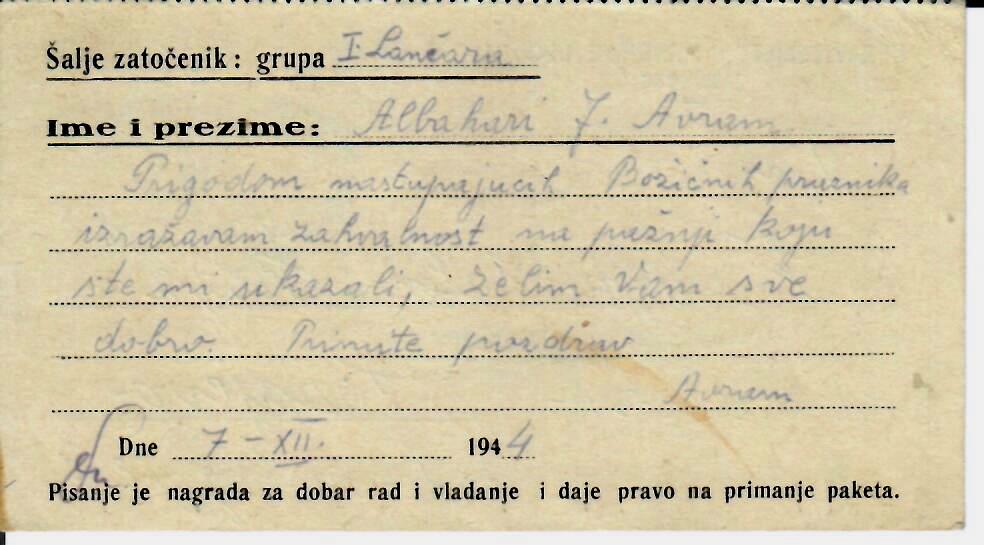 Šalje zatočenik: grupa I. Lančara
Ime i prezime: Albahari J. Avram
Prigodom nastupajućih Božićnih praznika
izražavam zahvalnost na pažnji koju
ste mi ukazali, želim Vam sve
dobro. Primite pozdrav
Avram
Dne 7-XII. 1944
Pisanje je nagrada za dobar rad i vladanje i daje pravo na primanje paketa.